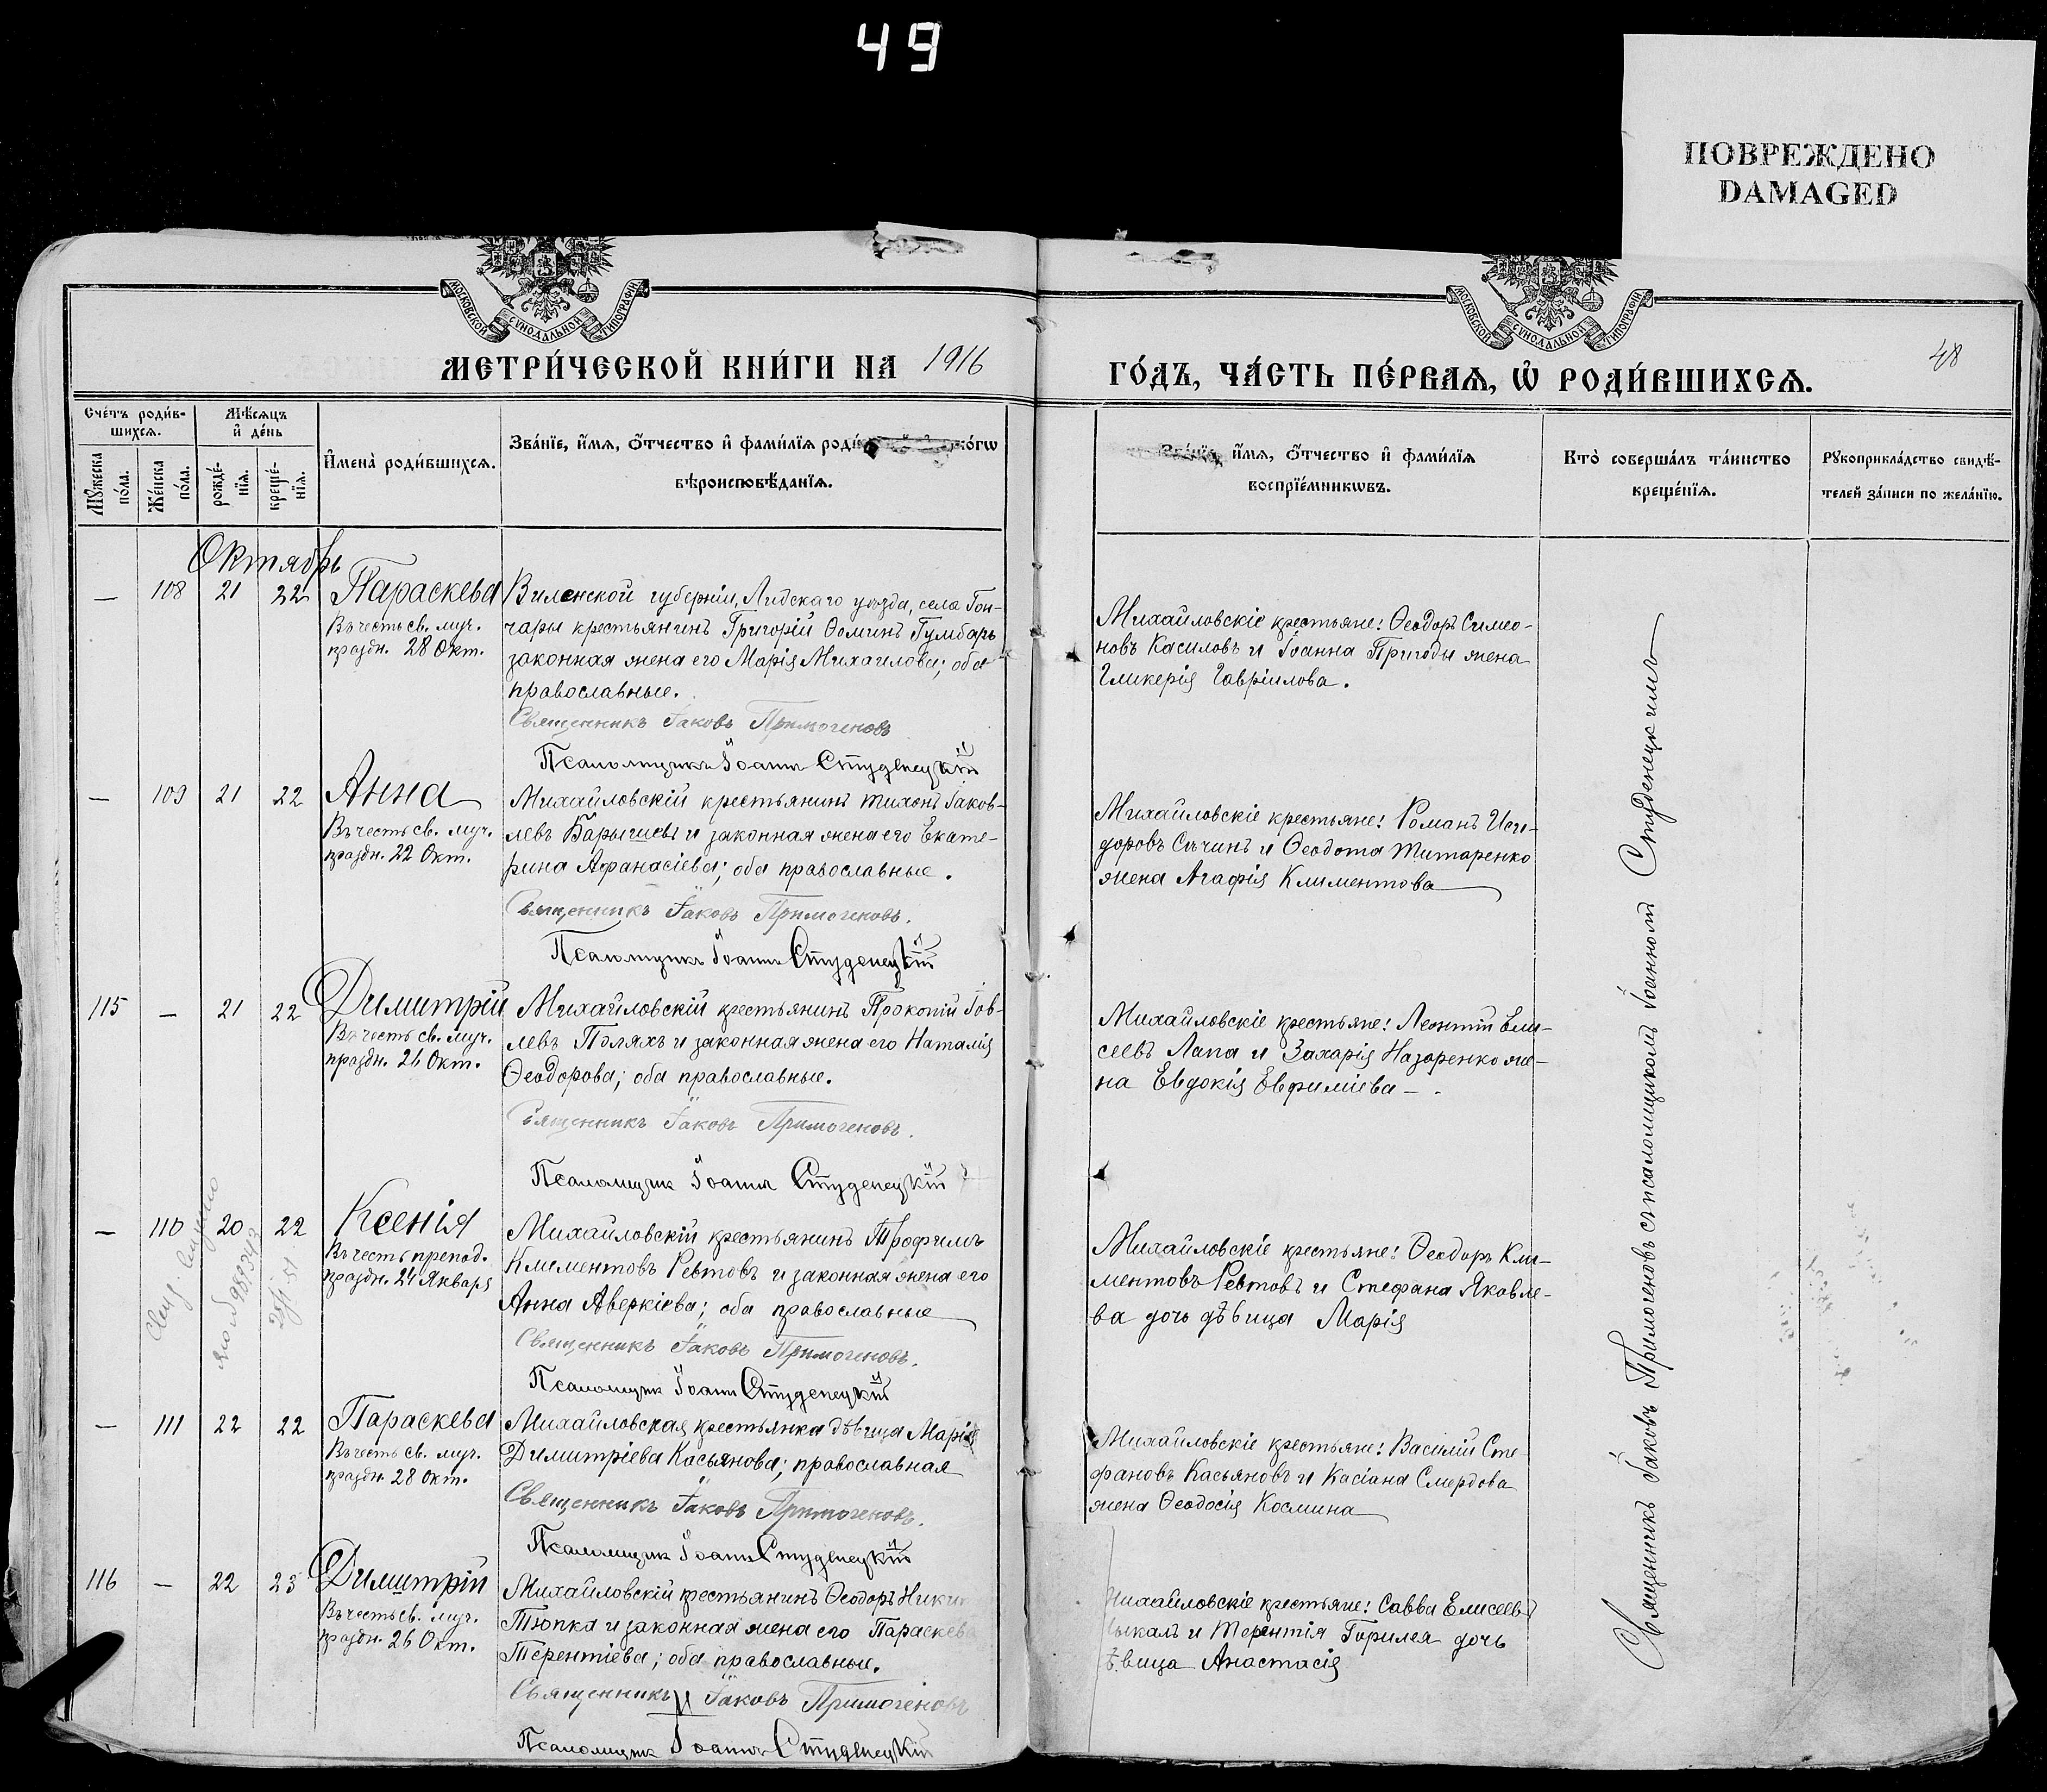 49
ПОВРЕЖДЕНО
DAMAGED
МОСКОВСКОЙ СѴНОДАЛЬНОЙ ТИПОГРАФІИ
МОСКОВСКОЙ СѴНОДАЛЬНОЙ ТИПОГРАФІИ
МЕТРИ́ЧЕСКОЙ КНИ́ГИ НА 1916
ГО́ДЪ, ЧА́СТЬ ПЕ́РВАЯ, Ѡ РОДИ́ВШИХСЯ.
48
Сче́тъ роди́в-
шихся.
Мѣсяцъ
и де́нь
Мꙋжеска
по́ла.
Же́нска
по́ла.
рожде́-
нїя.
креще́-
нїя.
Имена̀ роди́вшихся.
Зва́нїе, и́мя, о́тчество и фами́лїя роди́
ко́гѡ
вѣроисповѣданїя.
Зва́нїе, и́мя, о́тчество и фами́лїя
воспрїе́мникѡвъ.
Кто̀ соверша́лъ та́инство
креще́нїя.
Рꙋкоприкла́дство свидѣ́-
телей за́писи по жела́нїю.
Октябрь
— 108 21 22 Параскева
Въ честь св. муч.
праздн. 28 Окт.
Виленской губерніи, Лидскаго уѣзда, села Гон-
чары крестьянинъ Григорій Ѳоминъ Гумбаръ
законная жена его Марія Михаилова; оба
православные.
Священникъ Іаковъ Примогеновъ
Псаломщикъ Іоаннъ Студенецкій
Михайловскіе крестьяне: Ѳеодоръ Симео-
новъ Касиловъ и Іоанна Пригоды жена
Гликерія Гавріилова.
— 109 21 22 Анна
Въ честь св. муч.
праздн. 22 Окт.
Михайловскій крестьянинъ Тихонъ Іаков-
левъ Барышевъ и законная жена его Екате-
рина Афанасіева; оба православные.
Священникъ Іаковъ Примогеновъ.
Псаломщикъ Іоаннъ Студенецкій
Михайловскіе крестьяне: Романъ Иси-
доровъ Сычинъ и Ѳеодота Титаренко
жена Агафія Климентова
115 — 21 22 Димитрій
Въ честь св. муч.
праздн. 26 Окт.
Михайловскій крестьянинъ Прокопій Іов-
левъ Поляхъ и законная жена его Наталія
Ѳеодорова; оба православные.
Священникъ Іаковъ Примогеновъ.
Псаломщик Іоаннъ Студенецкій
Михайловскіе крестьяне: Леонтій Ели-
сеевъ Лапа и Захарія Назаренко же-
на Евдокія Евфиміева —.
— 110 20 22 Ксенія
Въ честь препод.
праздн. 24 Января
Михайловскій крестьянинъ Трофимъ
Климентовъ Ревтовъ и законная жена его
Анна Аверкіева; оба православные
Священникъ Іаковъ Примогеновъ.
Псаломщик Іоаннъ Студенецкій
Михайловскіе крестьяне: Ѳеодоръ Кли-
ментовъ Ревтовъ и Стефана Яковле-
ва дочь дѣвица Марія
— 111 22 22 Параскева
Въ честь св. муч.
праздн. 28 Окт.
Михайловская крестьянка дѣвица Марія
Димитріева Касьянова; православная
Священникъ Іаковъ Примогеновъ.
Псаломщик Іоаннъ Студенецкій
Михайловскіе крестьяне: Василій Сте-
фановъ Касьяновъ и Касіана Смердова
жена Ѳеодосія Космина
116 — 22 23 Димитрій
Въ честь св. муч.
праздн. 26 Окт.
Михайловскій крестьянинъ Ѳеодоръ Ники
Тюпка и законная жена его Параскева
Терентіева; оба православные.
Священникъ Іаковъ Примогеновъ
Псаломщик Іоаннъ Студенецкій
Михайловскіе крестьяне: Савва Елисеевъ
и Терентія Горилея дочь
дѣвица Анастасія
Священникъ Іаковъ Примогеновъ съ псаломщикомъ Іоанномъ Студенецкимъ